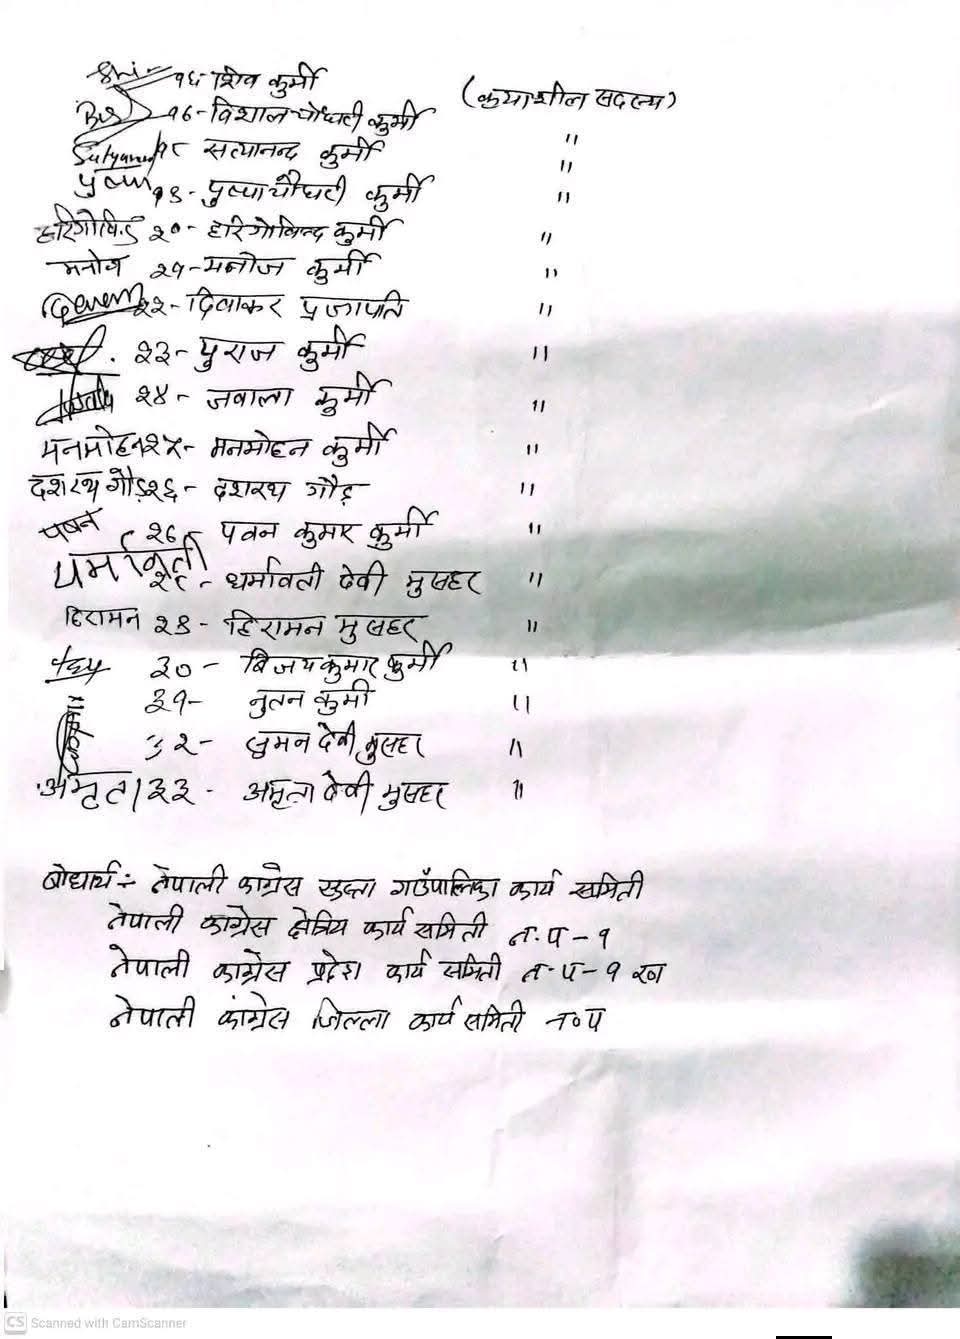 Shi १६- शिव कुर्मी (क्रयाशील सदस्य)
Bis १७- विशाल चौधरी कुर्मी "
Satyanand १८ सत्यानन्द कुर्मी "
पुष्पा १९- पुष्पा चौधरी कुर्मी "
हरिगोविन्द २०- हरिगोविन्द कुर्मी "
मनोज २१- मनोज कुर्मी "
२२- दिवाकर प्रजापति "
२३- पुराज कुर्मी "
२४- जवाला कुर्मी "
मनमोहन २५- मनमोहन कुर्मी "
दशरथ गौड़ २६- दशरथ गौड़ "
पवन २७- पवन कुमार कुर्मी "
धर्मावती २८- धर्मावती देवी मुसहर "
हिरामन २९- हिरामन मुसहर "
३०- बिजय कुमार कुर्मी "
३१- नुतन कुर्मी "
३२- सुमन देवी मुसहर "
अमृता ३३- अमृता देवी मुसहर "
बोधार्थ ÷ नेपाली कांग्रेस सुस्ता गाउँपालिका कार्य समिती
नेपाली कांग्रेस क्षेत्रिय कार्य समिती न.प-१
नेपाली कांग्रेस प्रदेश कार्य समिती न.प-१ ख
नेपाली कांग्रेस जिल्ला कार्य समिती न०प
CS Scanned with CamScanner